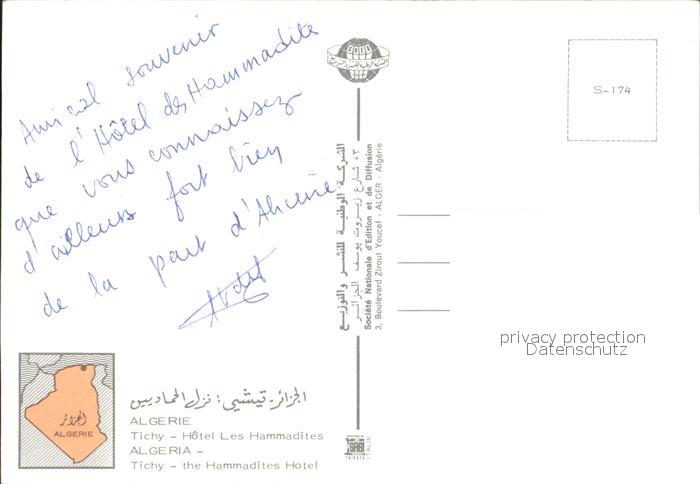 Amical souvenir
de l'Hôtel des Hammadite
que vous connaissez
d'ailleurs fort bien
de la part d'Ahcène
S-174
الشركة الوطنية للنشر والتوزيع
٤٣ شارع زيروت يوسف الجزائر
Société Nationale d'Edition et de Diffusion
3, Boulevard Zirout Youcef - ALGER - Algérie
privacy protection
Datenschutz
الجزائر
ALGERIE
الجزائر - تيشي : نزل الحماديين
ALGERIE
Tichy - Hôtel Les Hammadites
ALGERIA -
Tichy - the Hammadites Hotel
ITALIE